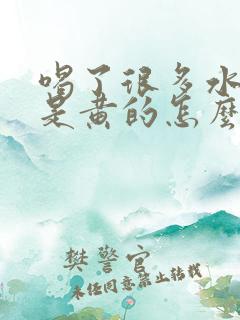 喝了很多水
是黄的怎麼
樊警官
未经同意禁止转载